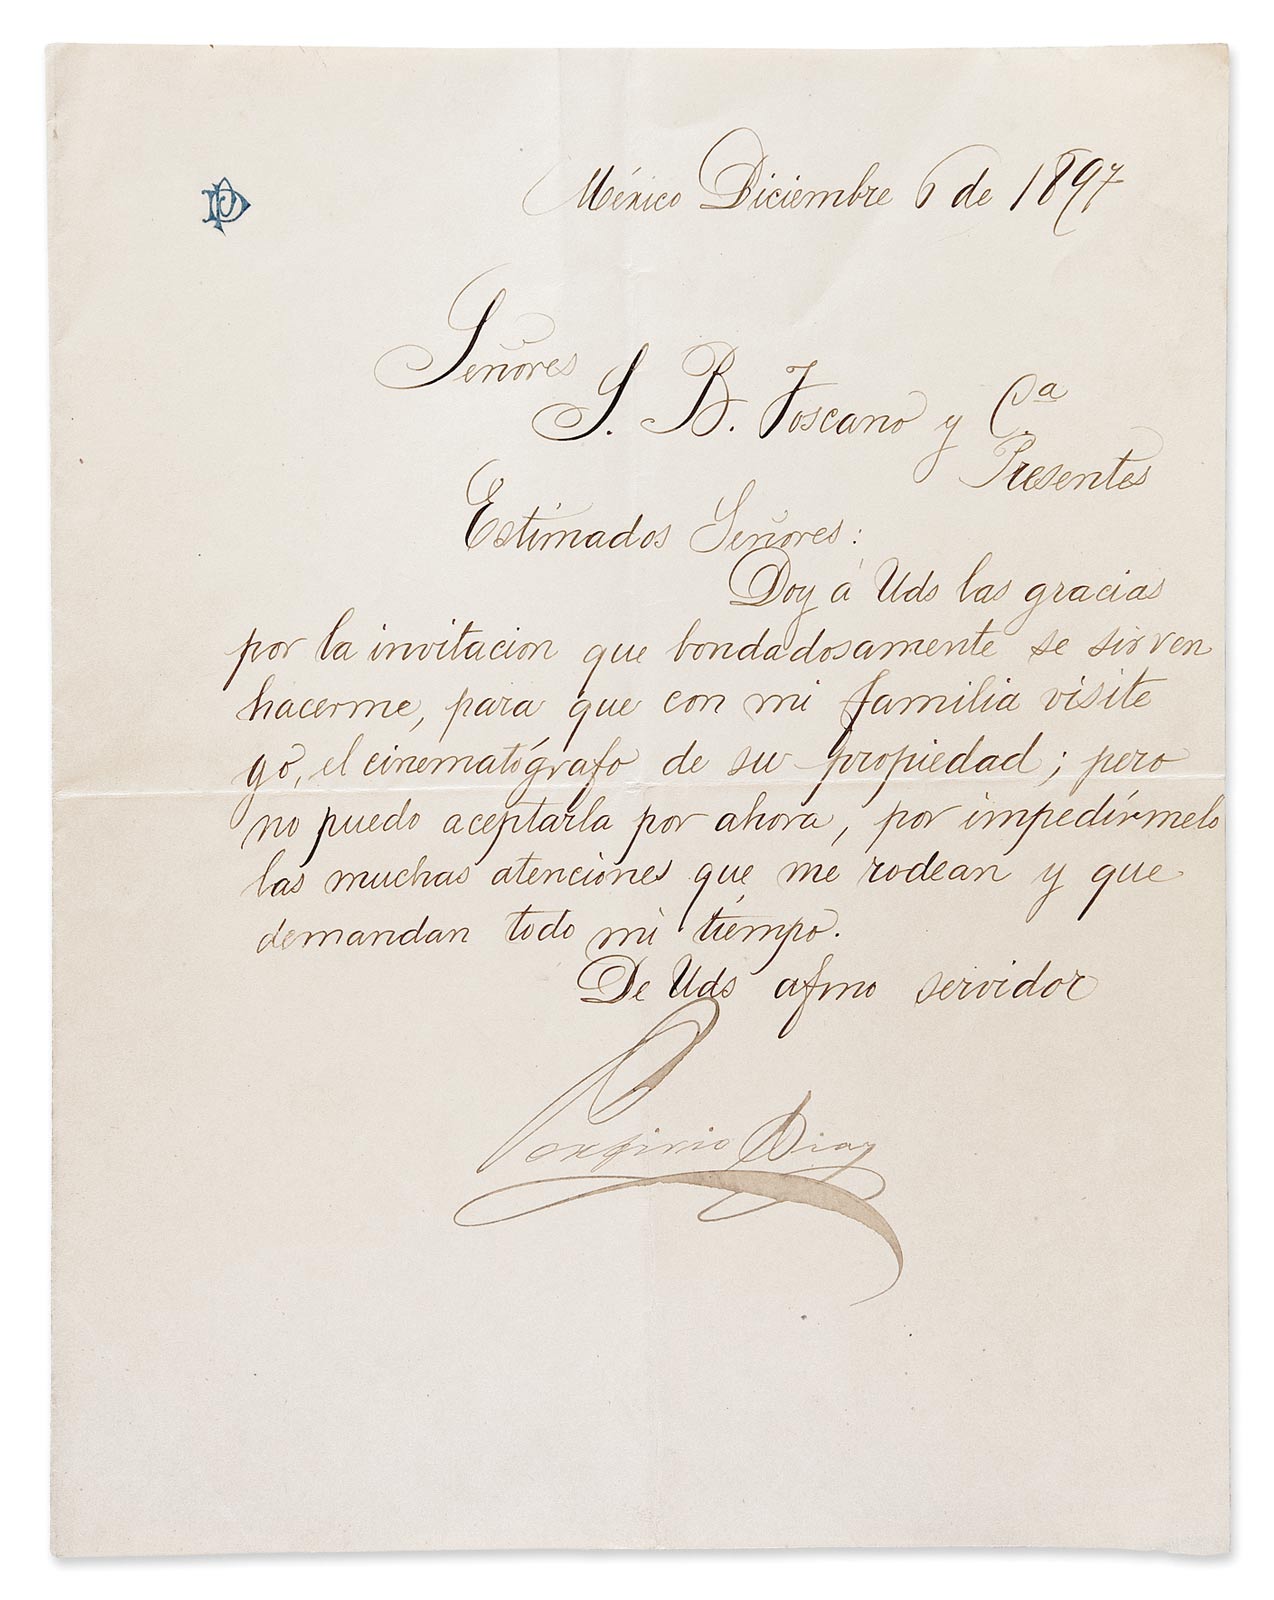 PD
México Diciembre 6 de 1897
Señores
S. B. Toscano y Cª
Presentes
Estimados Señores:
Doy á Uds las gracias
por la invitacion que bondadosamente se sirven
hacerme, para que con mi familia visite
yo, el cinematógrafo de su propiedad; pero
no puedo aceptarla por ahora, por impedírmelo
las muchas atenciones que me rodean y que
demandan todo mi tiempo.
De Uds afmo servidor
Porfirio Diaz